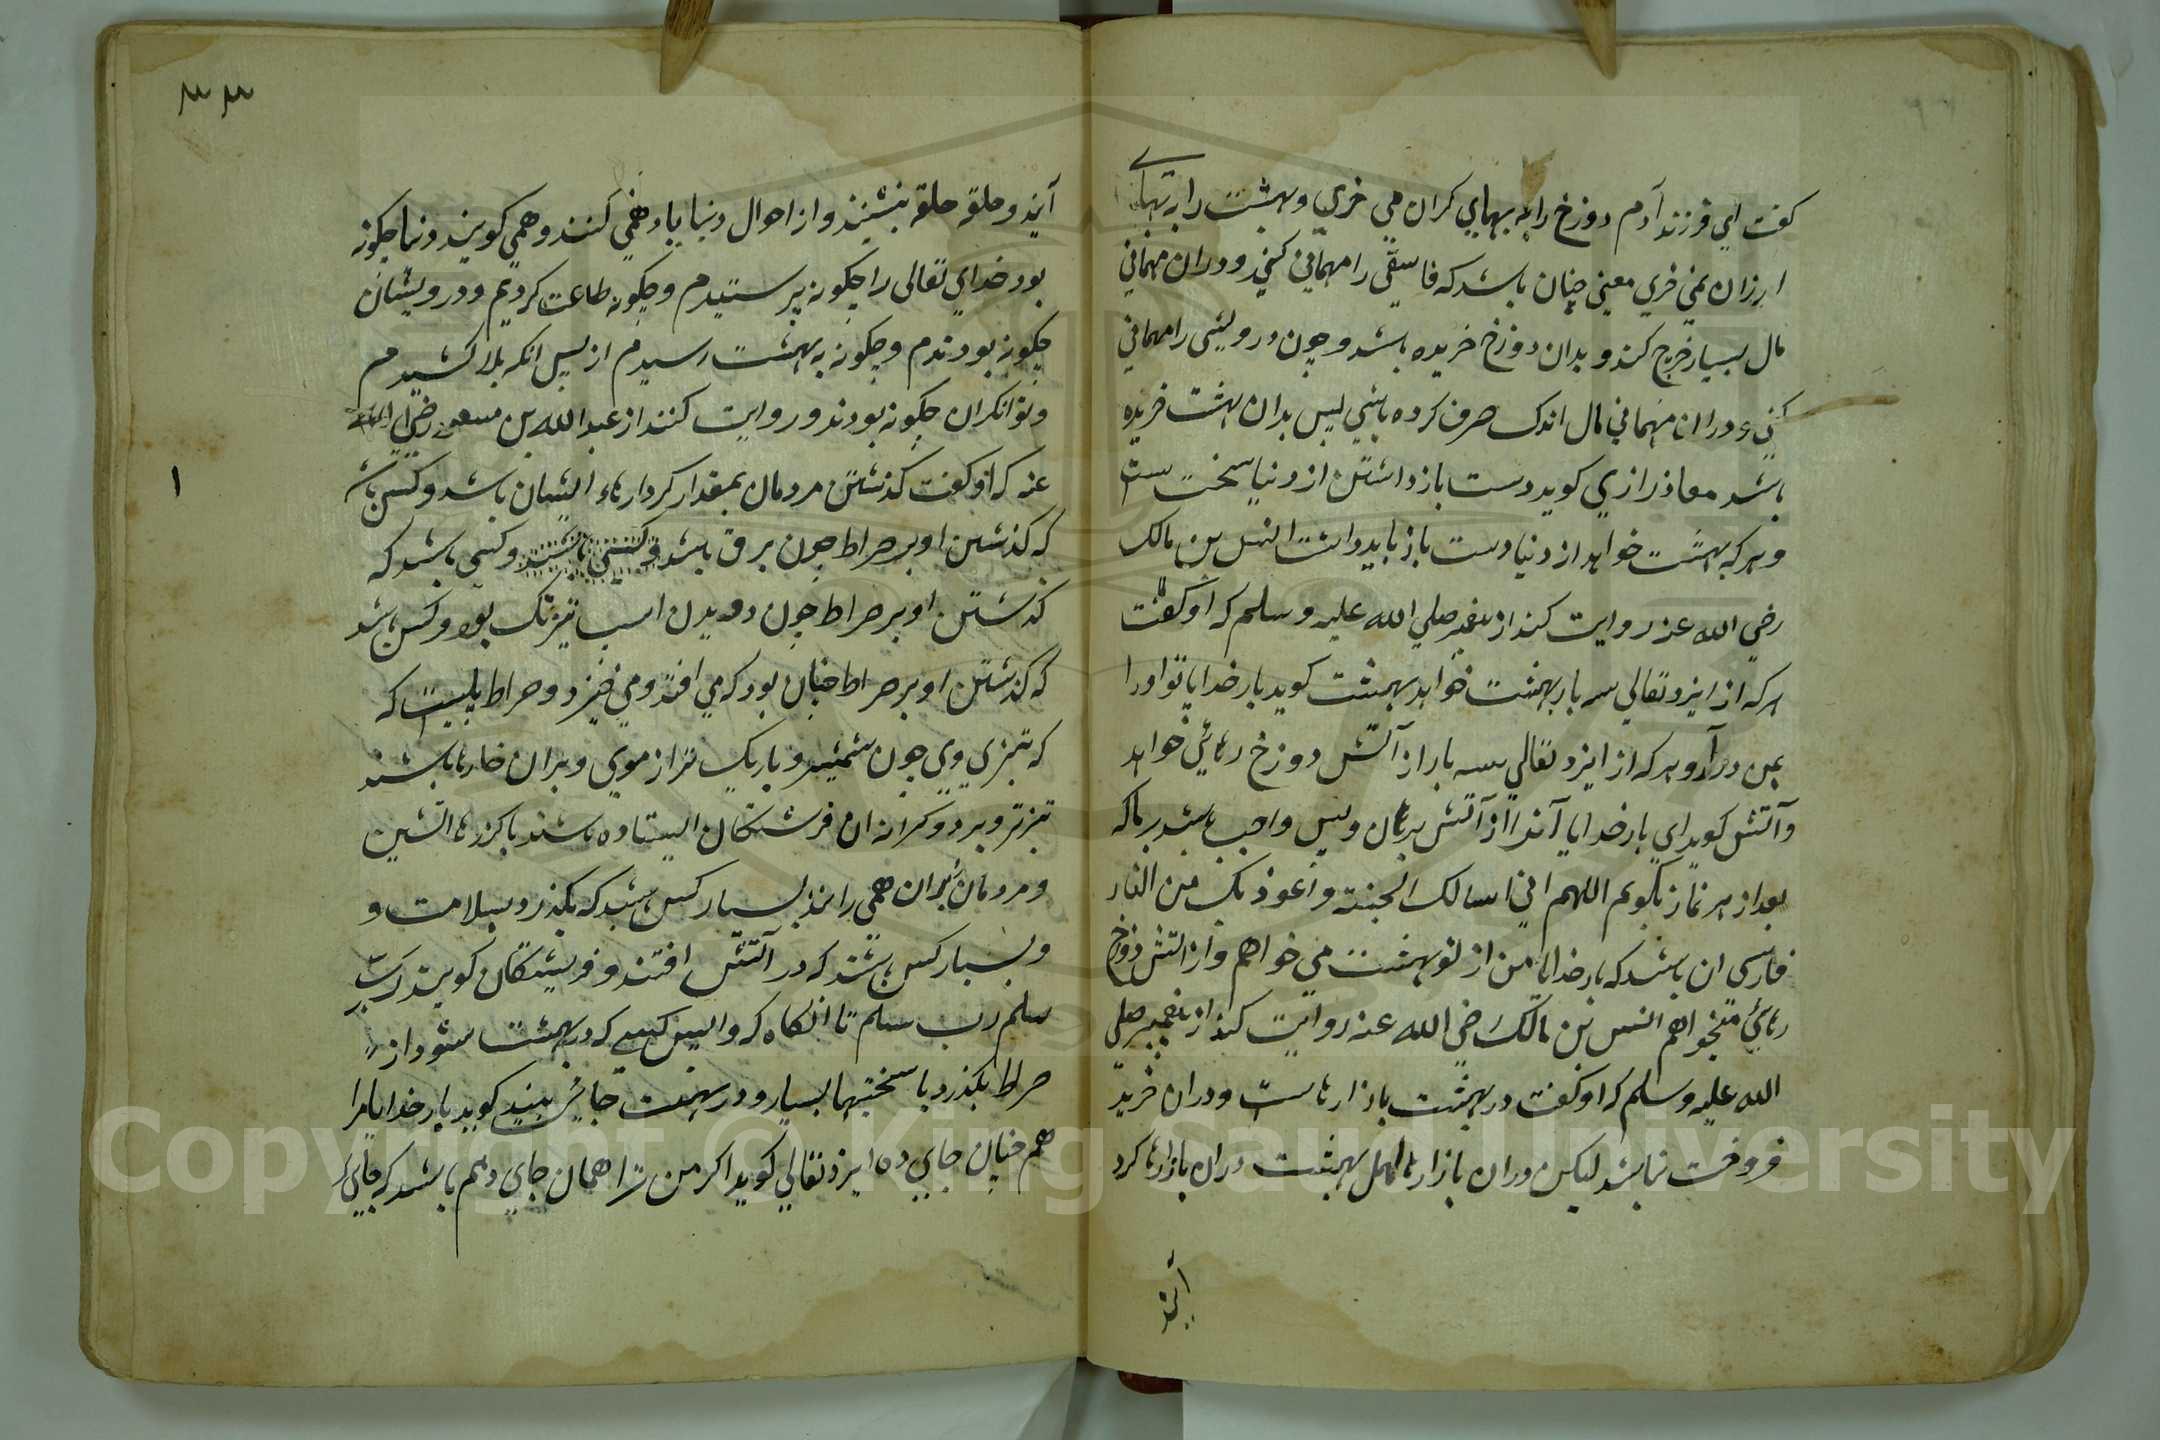 کفت ای فرزند آدم دوزخ را به بهای کران می خری و بهشت را به بهای
ارزان نمی خری معنی چنان باشد که فاسقی را مهمانی کنی و دران مهمانی
مال بسیار خرج کند و بدان دوزخ خریده باشد و چون درویشی را مهمانی
کنی و دران مهمانی مال اندک صرف کرده باشی پس بدان بهشت خریده
باشد معاذ رازی کوید دست بازداشتن از دنیا سخت ست
و هر که بهشت خواهد از دنیا دست باز باید داشت انس بن مالک
رضی الله عنه روایت کند از پیغمبر صلی الله علیه و سلم که او کفت
هر که از ایزد تعالی سه بار بهشت خواهد بهشت کوید بار خدایا تو او را
بمن درآر و هر که از ایزد تعالی سه بار از آتش دوزخ رهائی خواهد
و آتش کوید ای بار خدایا آنرا از آتش برهان و پس واجب باشد بر ما که
بعد از هر نماز بکویم اللهم انی اسالک الجنة و اعوذ بک من النار
فارسی ان باشد که بار خدایا من از تو بهشت می خواهم و از اتش دوزخ
رهائی میخواهم انس بن مالک رضی الله عنه روایت کند از پیغمبر صلی
الله علیه و سلم که او کفت در بهشت بازارهاست و دران خرید
فروخت نباشد لیکن دران بازارها اهل بهشت دران بازارها کرد
آیند
۳۳
آیند و حلقه حلقه بنشینند و از احوال دنیا یاد همی کنند و همی کویند دنیا چکونه
بود خدای تعالی را چکونه پرستیدم و چکونه طاعت کردیم و درویشان
چکونه بودندم و چکونه به بهشت رسیدم از پس انکه بلا کشیدم
و توانکران چکونه بودند و روایت کنند از عبد الله بن مسعود رضی الله
عنه که او کفت کذشتن مردمان بمقدار کردارهاء ایشان باشد و کس باشد
که کذشتن او بر صراط چون برق باشد و کسی باشد و کسی باشد که
کذشتن او بر صراط چون دویدن اسب تیزتک بود و کس باشد
که کذشتن او بر صراط چنان بود که می افتد و می خیزد و صراط پلیست که
که تیزی وی چون شمشیر و باریک تر از موی و بران خارها باشند
تیزتر و بر دو کرانه ان فرشتکان ایستاده باشند با کرزهاء اتشین
و مردمان بران همی رانند بسیار کس باشد که بکذرد بسلامت و
و بسیار کس باشند که در آتش افتند و فریشتکان کویند رب
سلم رب سلم تا انکاه که واپس کسی که در بهشت شود از
صراط بکذرد با سختیها بسیار و در بهشت جائی بیند کوید بار خدایا مرا
هم چنان جای ده ایزد تعالی کوید اکر من ترا همان جای دهم باشد که جای
۱
Copyright © King Saud University